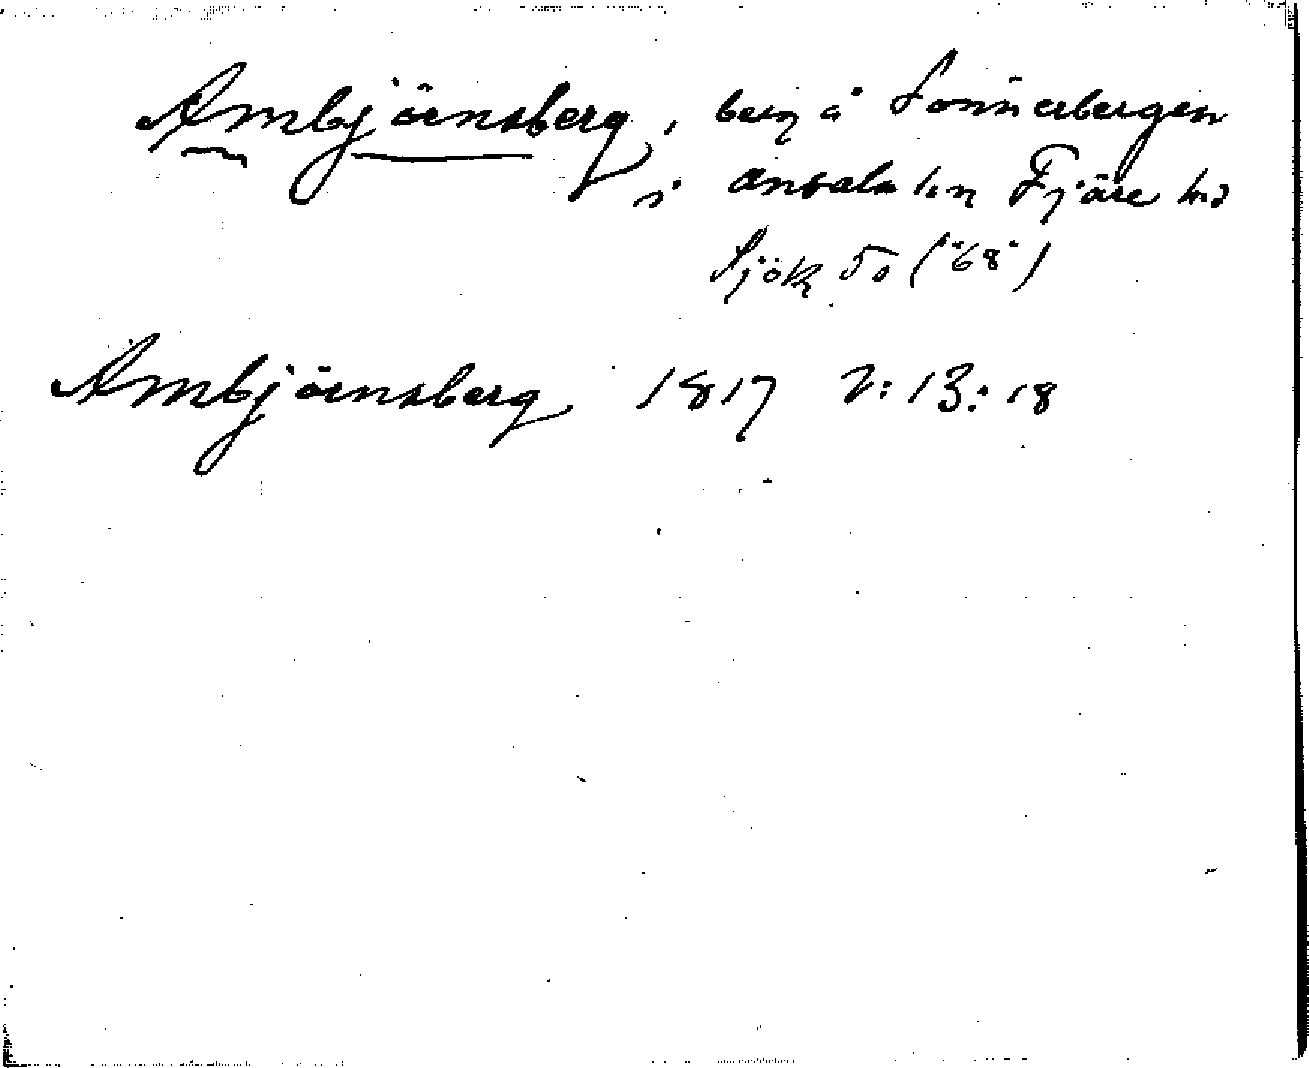 Ambjörnsberg, berg å Sönnerbergen
i Onsala sn Fjäre hd
Sjök 50 ("68")
Ambjörnsberg 1817 2:13:18